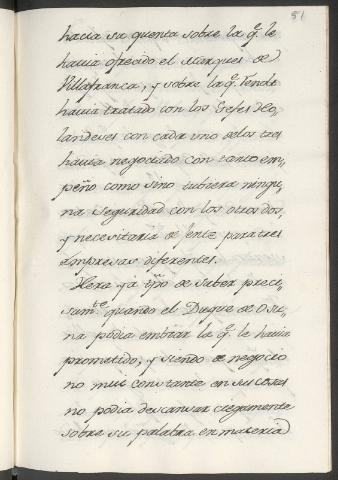 51
hacia su quenta sobre la q.e le
havia ofrecido el Marques de
Villafranca, y sobre la q.e Tende
havia tratado con los Gefes Ho-
landeses con cada uno de los tres
havia negociado con tanto em-
peño como sino tubiera ningu-
na seguridad con los otros dos,
y necesitaria de jente para tres
empresas diferentes.
Hera ya tpō de saber preci-
sam.te quando el Duque de Osu-
na podia embiar la q.e le havia
prometido; y siendo de negocio
no mui constante en sus cosas
no podia descansar ciegamente
sobre su palabra en materia